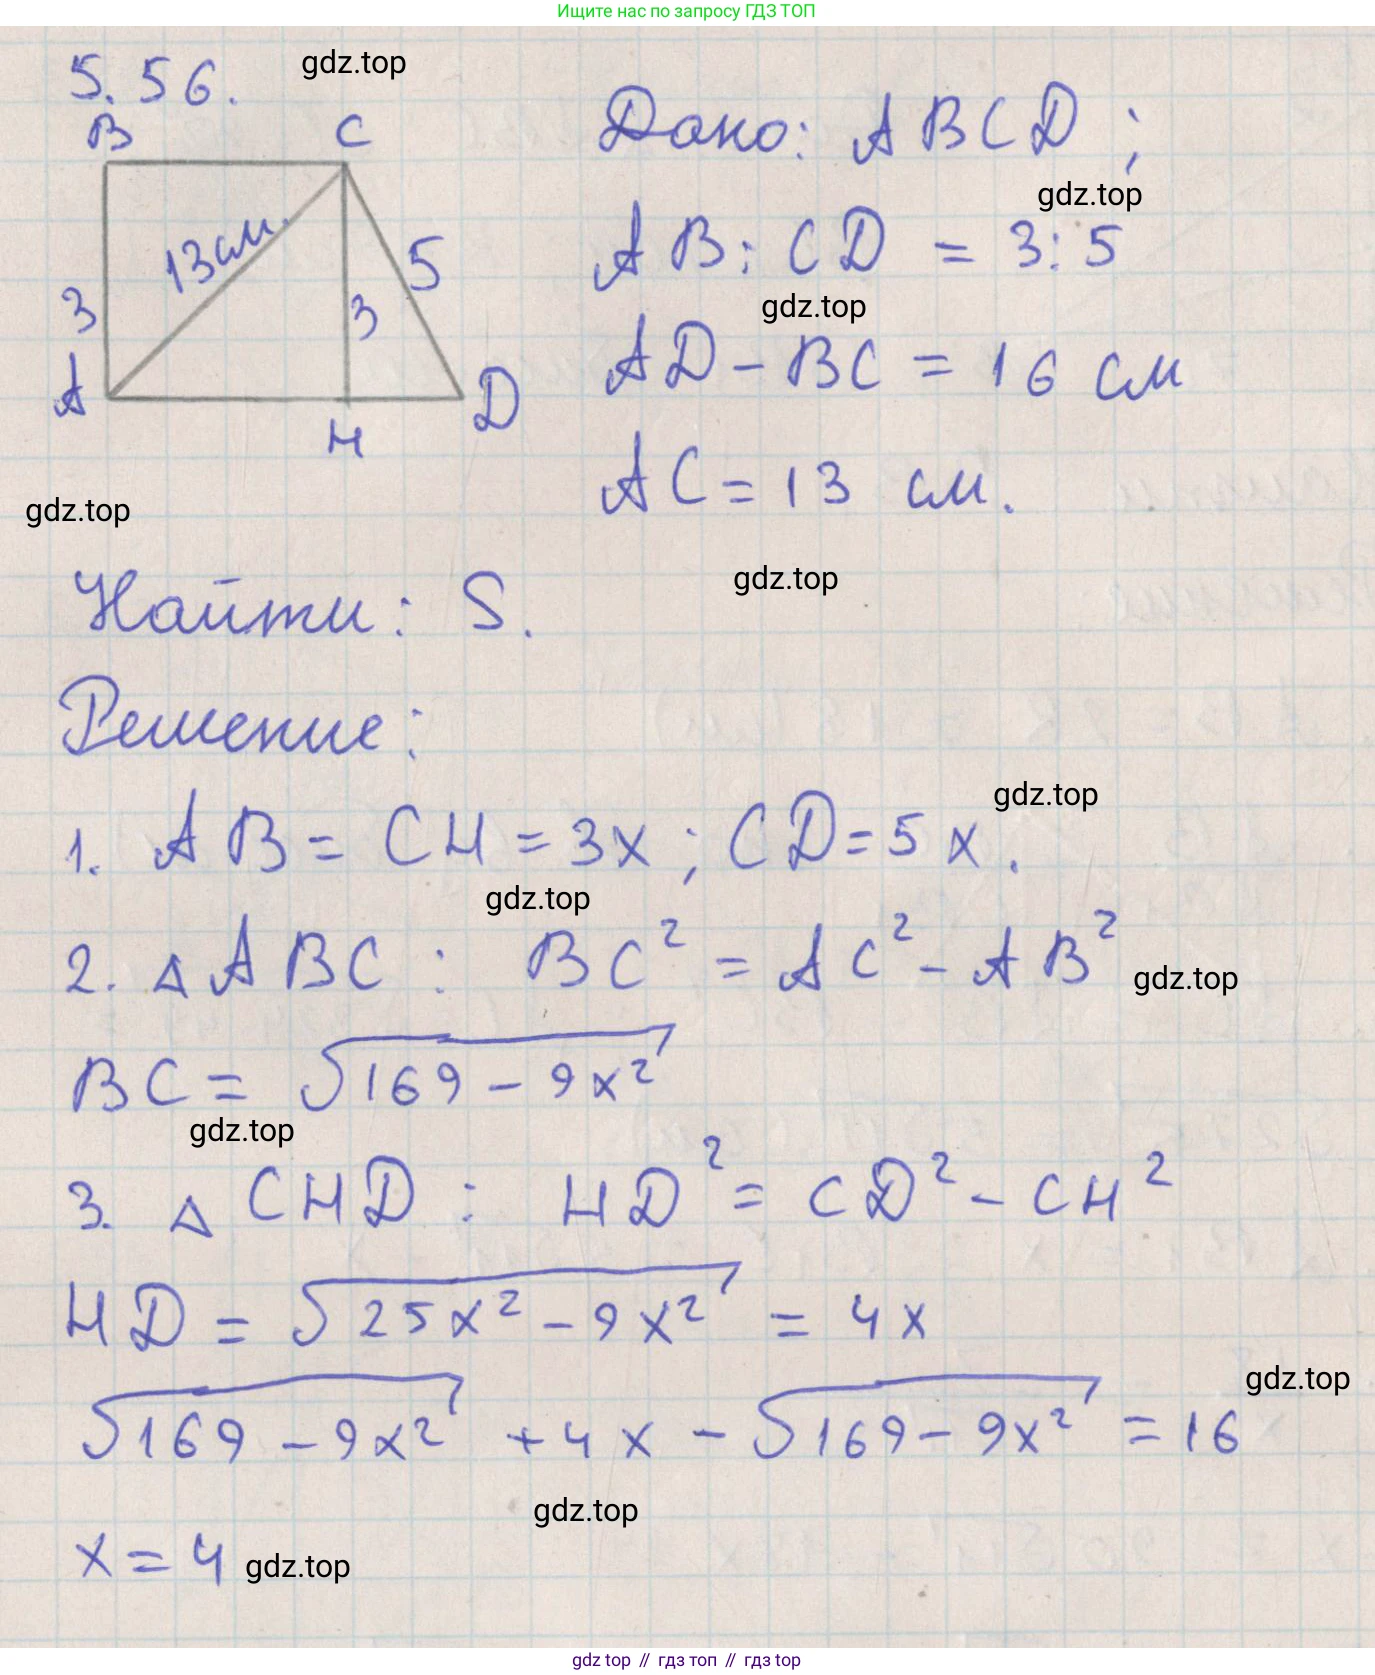 Ищите нас по запросу ГДЗ ТОП
5.56.
gdz.top
B
C
13 см.
3
3
5
A
H
D
gdz.top
Дано: ABCD;
gdz.top
AB : CD = 3:5
gdz.top
AD - BC = 16 см
AC = 13 см.
gdz.top
Найти: S.
Решение:
gdz.top
1. AB = CH = 3x; CD = 5x.
gdz.top
2. △ABC : BC² = AC² - AB²
gdz.top
BC = √169 - 9x²
gdz.top
3. △CHD : HD² = CD² - CH²
HD = √25x² - 9x² = 4x
gdz.top
√169 - 9x² + 4x - √169 - 9x² = 16
gdz.top
x = 4
gdz.top
gdz top // гдз топ // гдз top